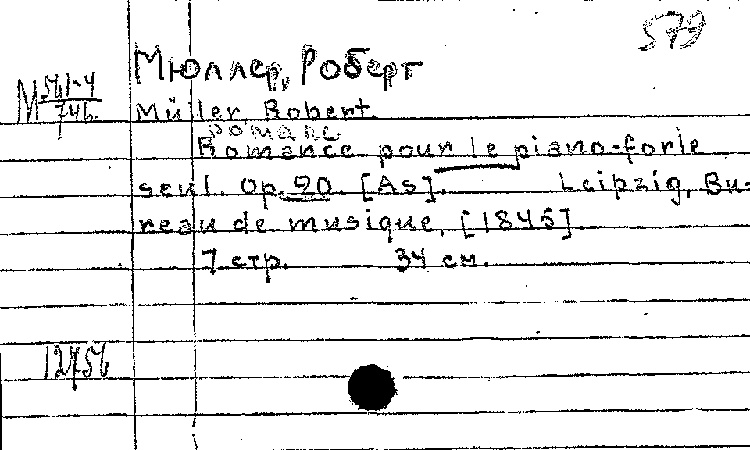 579
Мюллер, Роберт
М 561-4
746
Müller, Robert.
романс
Romance pour le piano-forte
seul. Op. 20. [As]. Leipzig, Bu-
reau de musique, [1845]
7 стр. 34 см.
12756